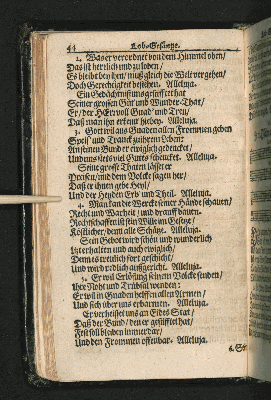 44 Lob-Gesänge.
2. Was er verordnet von dem Himmel oben/
Das ist herrlich und zu loben/
Es bleibt bey ihm/ muß gleich die Welt vergehen/
Doch Gerechtigkeit bestehen. Alleluja.
Ein Gedächtnüs uns gestifftet hat
Seiner grossen Güt und Wunder-That/
Er/ der HErr voll Gnad und Treu/
Daß man ihn erkenne hiebey. Alleluja.
3. Gott wil aus Gnaden allen Frommen geben
Speiß und Tranck zu ihrem Leben:
An seinen Bund er ewiglich gedencket/
Und uns stets viel Gutes schencket. Alleluja.
Seine grosse Thaten lässet er
dem Volcke sagen her/
Daß er ihnen gebe Heyl/
Und der Heyden Erb und Theil. Alleluja.
4. Man kan der Wercke seiner Hände schauen/
Recht und Warheit/ und drauff bauen.
Rechtschaffen ist sein Wille im Gesetze/
Köstlicher/ denn alle Schätze. Alleluja.
Sein Gebot wird schön und wunderlich
Itzt erhalten und auch ewiglich/
Dem es treulich fort geschicht/
Und wird redlich auffgericht. Alleluja.
5. Er wil Erlösung seinem Volcke senden/
Ihre Noht und Trübsal wenden:
Er wil in Gnaden helffen allen Armen/
Und sich über uns erbarmen. Alleluja.
Er verheisset uns an Eides Stat/
Daß der Bund/ den er gestifftet hat/
Fest soll bleiben immerdar/
Und den Frommen offenbar. Alleluja.